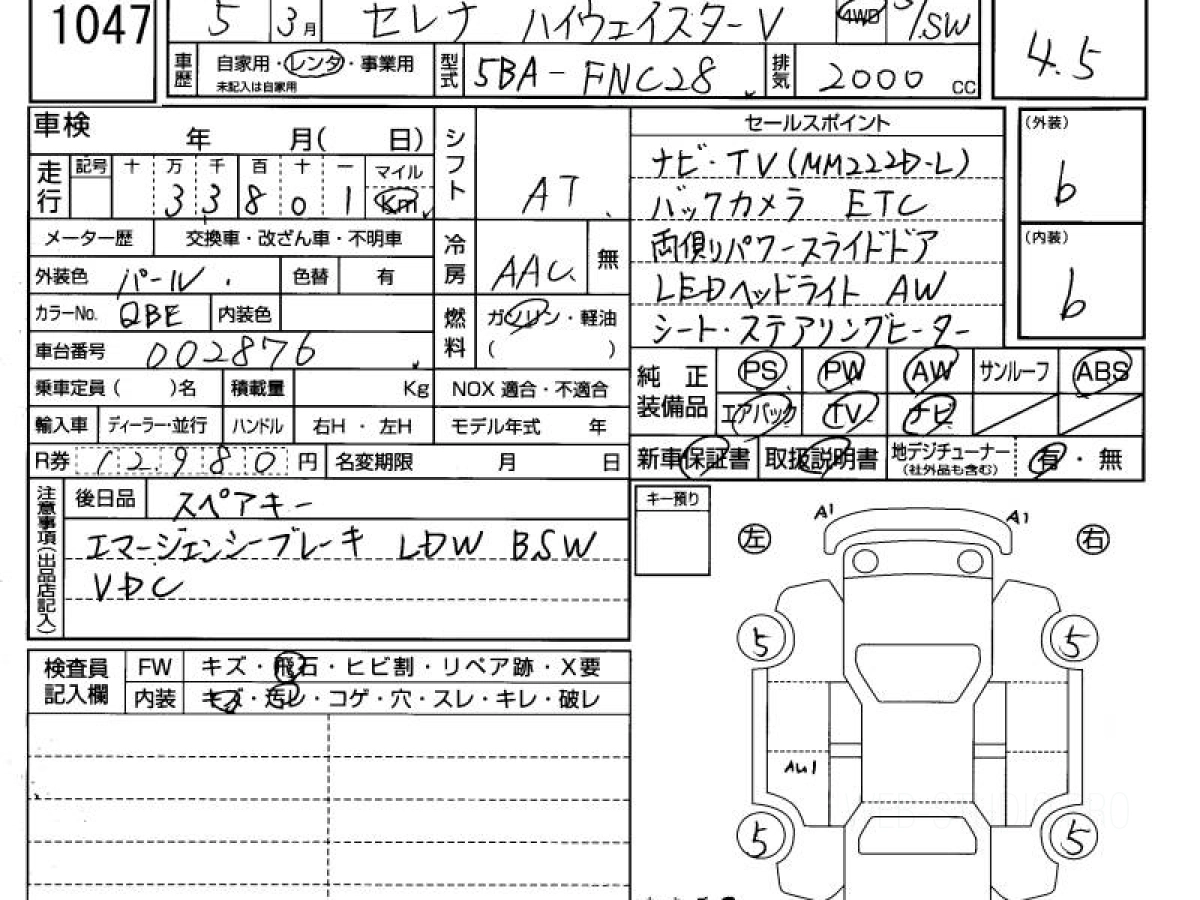 1047
5 3月 セレナ ハイウェイスターV 4WD 5/.SW
4.5
車歴 自家用・レンタ・事業用
未記入は自家用
型式 5BA-FNC28
排気 2000 CC
車検 年 月( 日)
走行 記号 十 万 千 百 十 一 マイル
3 3 8 0 1 Km
メーター歴 交換車・改ざん車・不明車
外装色 パール 色替 有
カラーNo. QBE 内装色
車台番号 002876
乗車定員( )名 積載量 Kg
輸入車 ディーラー・並行 ハンドル 右H・左H
R券 12,980 円 名変期限 月 日
シフト AT
冷房 AAC 無
燃料 ガソリン・軽油
( )
NOX 適合・不適合
モデル年式 年
セールスポイント
ナビ・TV(MM222D-L)
バックカメラ ETC
両側リパワースライドドア
LEDヘッドライト AW
シート・ステアリングヒーター
(外装)
b
(内装)
b
純正装備品 PS PW AW サンルーフ ABS
エアバック TV ナビ
新車保証書 取扱説明書 地デジチューナー
(社外品も含む)
有・無
注意事項(出品店記入)
後日品 スペアキー
エマージェンシーブレーキ LDW BSW
VDC
キー預り
検査員記入欄
FW キズ・飛石・ヒビ割・リペア跡・X要
内装 キズ・汚レ・コゲ・穴・スレ・キレ・破レ
左 A1 A1 右
5 5
AU1
5 5